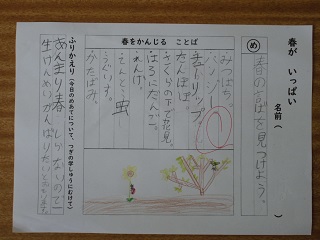 春が いっぱい
名前（ ）
め 春のことばを見つけよう。
春をかんじる ことば
・みつばち。
・パンジー
・チューリップ。
・たんぽぽ。
・さくらの下で花見。
・はるいちばん。
・れんげ。
虫
・うぐいす。
・かたばみ。
ふりかえり（今日のめあてについて、つぎの学しゅうにむけて）
あんまり春 しらないので
生けんめいがんばりたいとおもいます